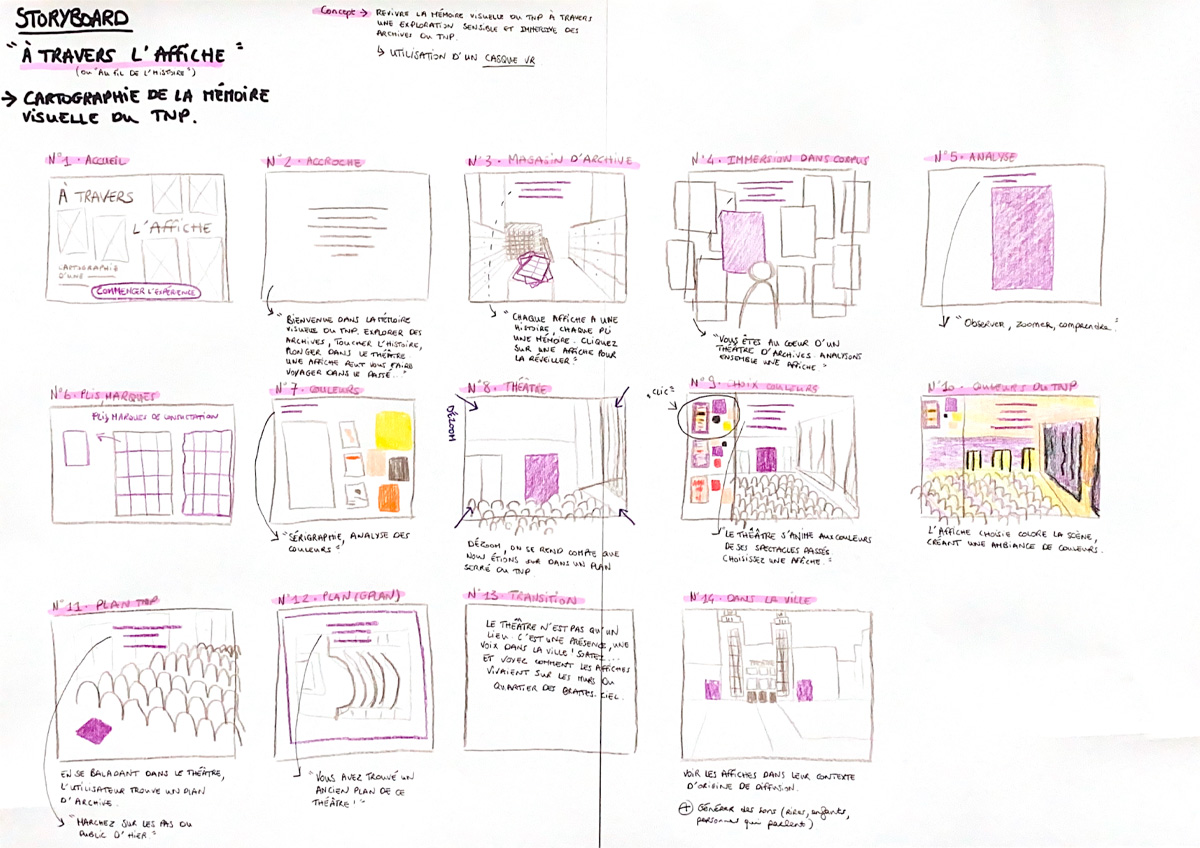 STORYBOARD
"À TRAVERS L'AFFICHE"
(OU "AU FIL DE L'HISTOIRE")
→ CARTOGRAPHIE DE LA MÉMOIRE
VISUELLE DU TNP.
Concept → REVIVRE LA MÉMOIRE VISUELLE DU TNP À TRAVERS
UNE EXPLORATION SENSIBLE ET IMMERSIVE DES
ARCHIVES DU TNP.
↳ UTILISATION D'UN CASQUE VR
N°1 · ACCUEIL
À TRAVERS
L'AFFICHE
CARTOGRAPHIE
D'UNE
COMMENCER L'EXPÉRIENCE
N°2 · ACCROCHE
"BIENVENUE DANS LA MÉMOIRE
VISUELLE DU TNP. EXPLORER DES
ARCHIVES, TOUCHER L'HISTOIRE,
PLONGER DANS LE THÉÂTRE.
UNE AFFICHE PEUT VOUS FAIRE
VOYAGER DANS LE PASSÉ..."
N°3 · MAGASIN D'ARCHIVE
"CHAQUE AFFICHE A UNE
HISTOIRE, CHAQUE PLI
UNE MÉMOIRE. CLIQUEZ
SUR UNE AFFICHE POUR
LA RÉVEILLER"
N°4 · IMMERSION DANS CORPUS
"VOUS ÊTES AU COEUR D'UN
THÉÂTRE D'ARCHIVES. ANALYSONS
ENSEMBLE UNE AFFICHE"
N°5 · ANALYSE
"OBSERVER, ZOOMER, COMPRENDRE."
N°6 · PLIS, MARQUES
PLIS, MARQUES DE CONSULTATION
N°7 · COULEURS
"SÉRIGRAPHIE, ANALYSE DES
COULEURS"
N°8 · THÉÂTRE
DÉZOOM
DÉZOOM, ON SE REND COMPTE QUE
NOUS ÉTIONS SUR DANS UN PLAN
SERRÉ DU TNP
N°9 · CHOIX COULEURS
"CLIC"
"LE THÉÂTRE S'ANIME AUX COULEURS
DE SES SPECTACLES PASSÉS.
CHOISISSEZ UNE AFFICHE."
N°10 · COULEURS DU TNP
L'AFFICHE CHOISIE COLORE LA SCÈNE,
CRÉANT UNE AMBIANCE DE COULEURS.
N°11 · PLAN TNP
EN SE BALADANT DANS LE THÉÂTRE,
L'UTILISATEUR TROUVE UN PLAN
D'ARCHIVE.
"MARCHEZ SUR LES PAS DU
PUBLIC D'HIER."
N°12 · PLAN (GPLAN)
"VOUS AVEZ TROUVÉ UN
ANCIEN PLAN DE CE
THÉÂTRE!"
N°13 TRANSITION
LE THÉÂTRE N'EST PAS QU'UN
LIEU. C'EST UNE PRÉSENCE, UNE
VOIX DANS LA VILLE! SORTEZ...
ET VOYEZ COMMENT LES AFFICHES
VIVAIENT SUR LES MURS DU
QUARTIER DES GRATTE-CIEL.
N°14 · DANS LA VILLE
VOIR LES AFFICHES DANS LEUR CONTEXTE
D'ORIGINE DE DIFFUSION.
+ Générer des sons (rires, enfants,
personnes qui parlent)